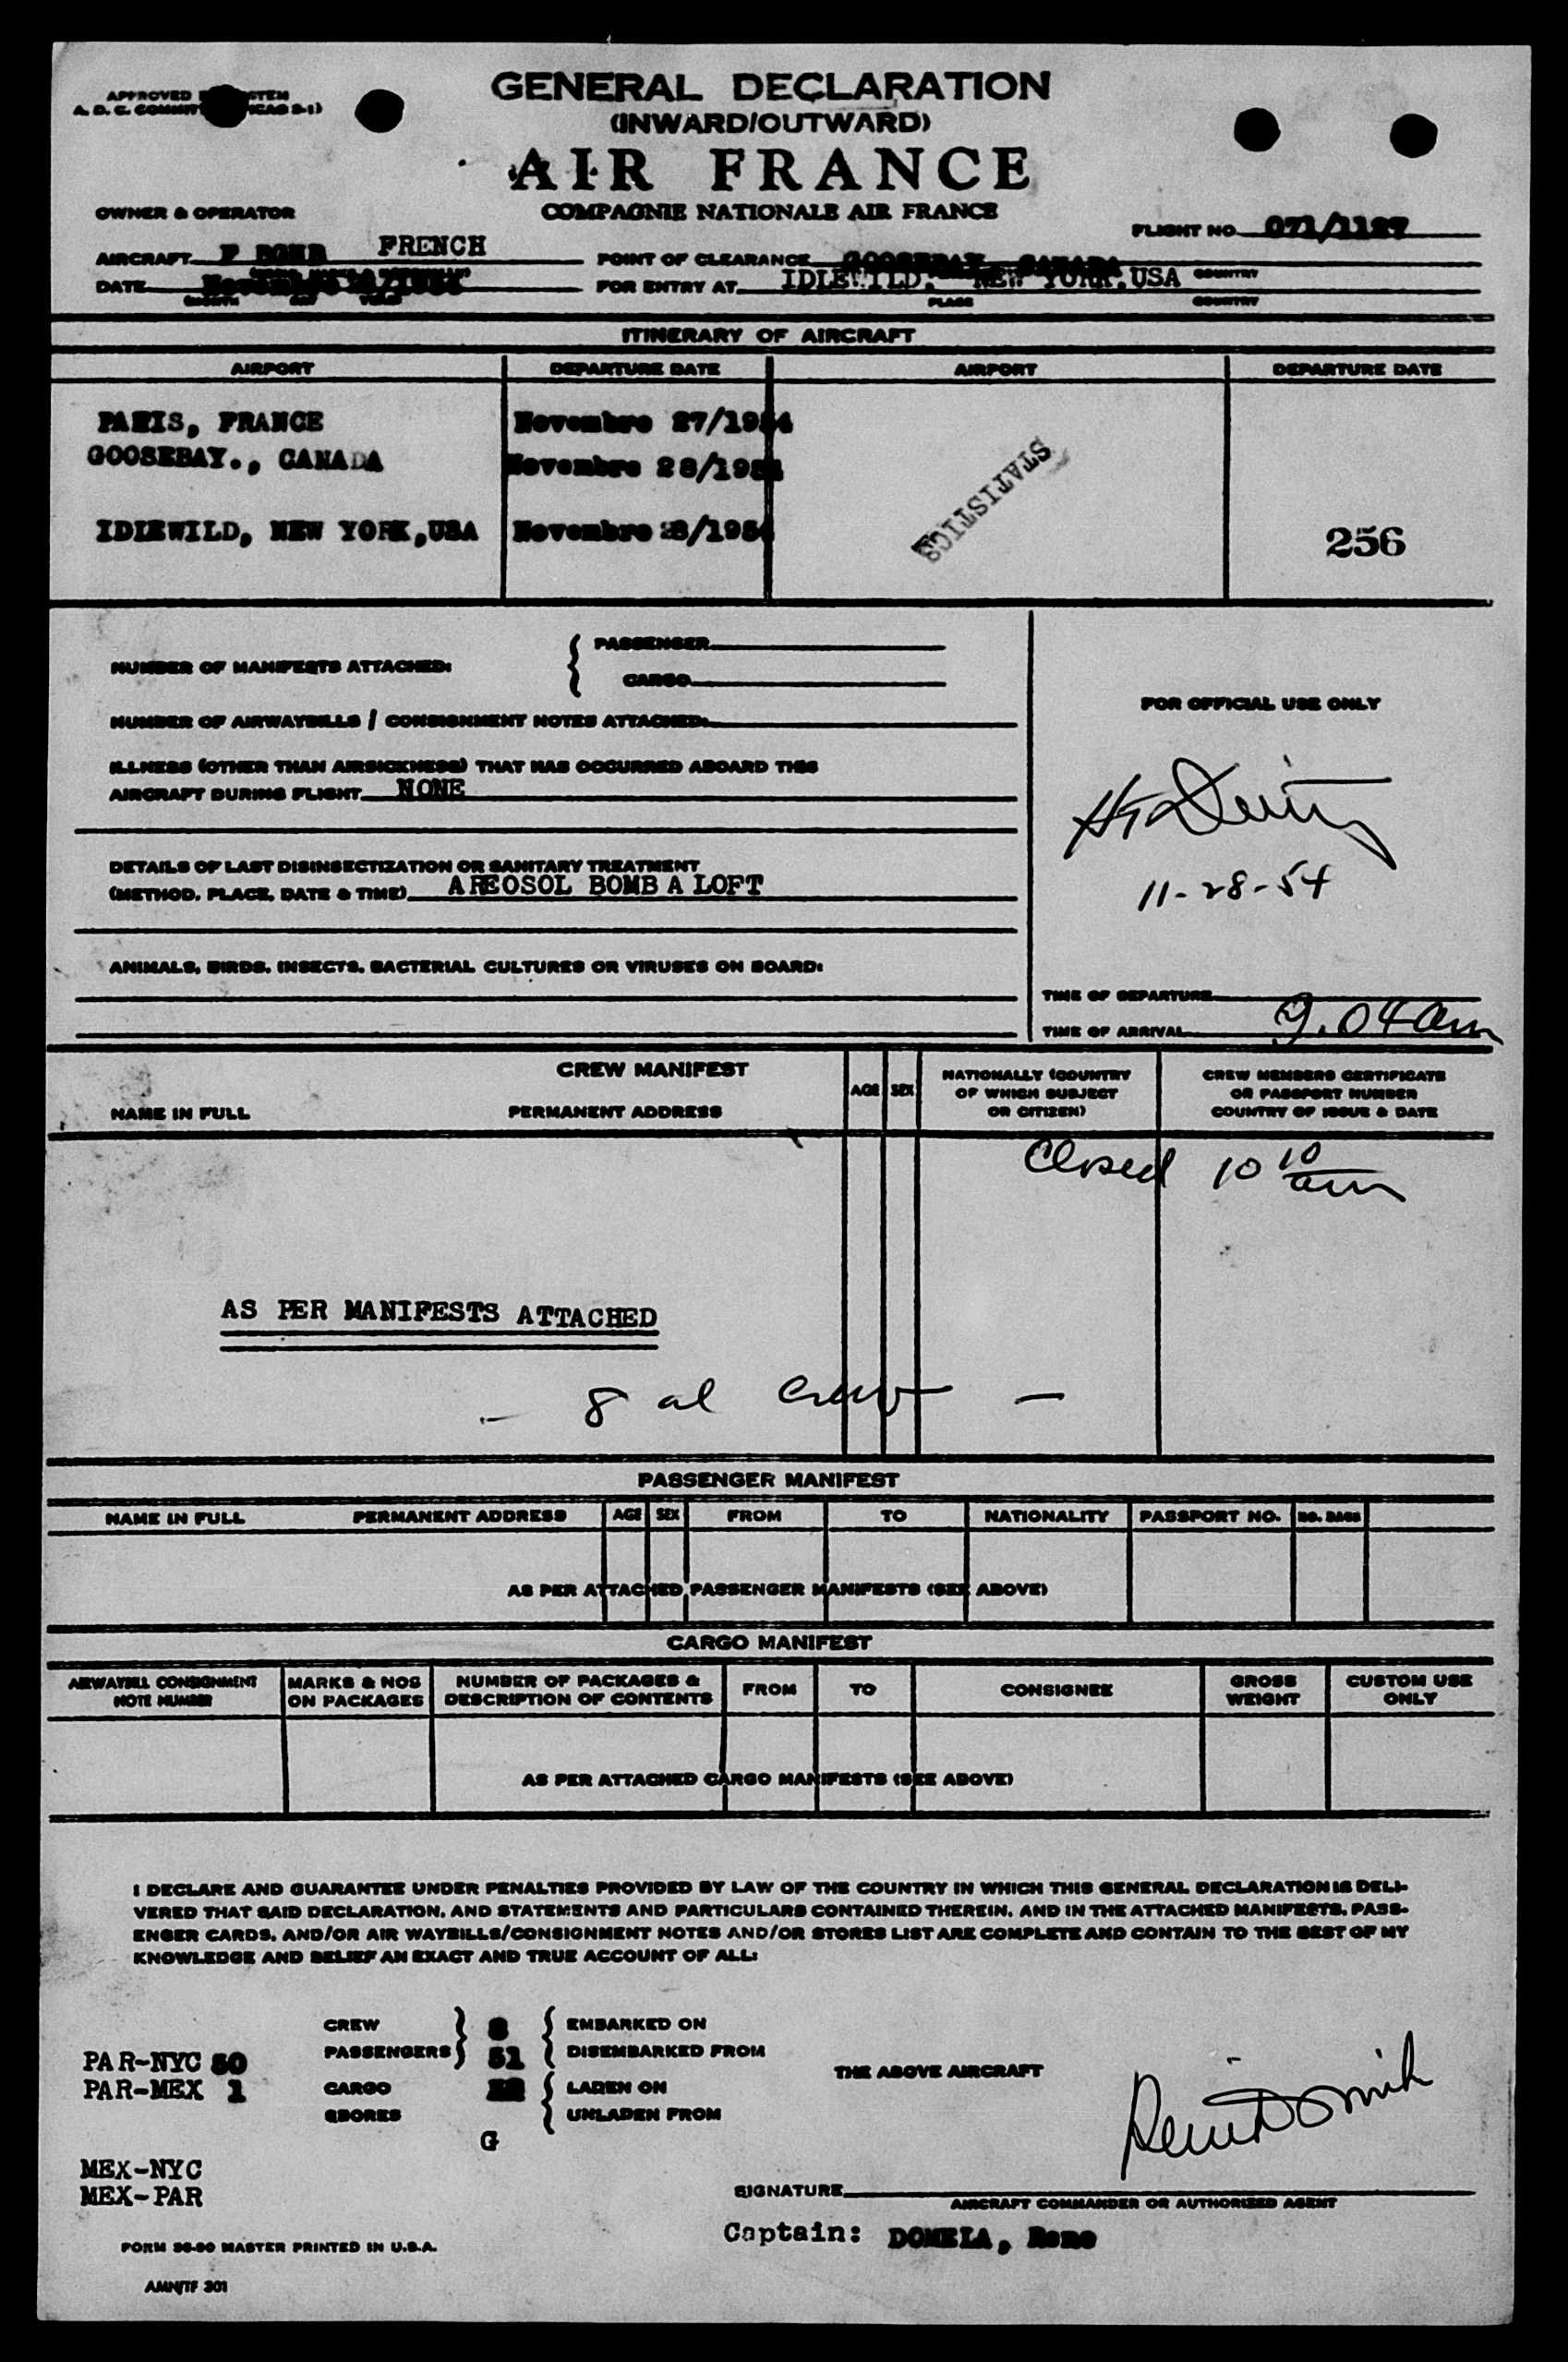 GENERAL DECLARATION
(INWARD/OUTWARD)
AIR FRANCE
COMPAGNIE NATIONALE AIR FRANCE
APPROVED
A. D. C.
OWNER & OPERATOR
FLIGHT NO. 071/1127
AIRCRAFT FRENCH
POINT OF CLEARANCE GOOSEBAY CANADA
COUNTRY
DATE
FOR ENTRY AT IDLEWILD, NEW YORK, USA
MONTH DAY YEAR
PLACE
COUNTRY
ITINERARY OF AIRCRAFT
AIRPORT DEPARTURE DATE AIRPORT DEPARTURE DATE
PARIS, FRANCE Novembre 27/1954
GOOSEBAY., CANADA Novembre 28/1954
STATISTICS
IDLEWILD, NEW YORK,USA Novembre 28/1954
256
PASSENGER
NUMBER OF MANIFESTS ATTACHED:
CARGO
NUMBER OF AIRWAYBILLS / CONSIGNMENT NOTES ATTACHED:
FOR OFFICIAL USE ONLY
ILLNESS (OTHER THAN AIRSICKNESS) THAT HAS OCCURRED ABOARD THIS
AIRCRAFT DURING FLIGHT NONE
DETAILS OF LAST DISINSECTIZATION OR SANITARY TREATMENT
(METHOD, PLACE, DATE & TIME) AREOSOL BOMB A LOFT
11-28-54
ANIMALS, BIRDS, INSECTS, BACTERIAL CULTURES OR VIRUSES ON BOARD:
TIME OF DEPARTURE
TIME OF ARRIVAL 9.04 am
CREW MANIFEST
NAME IN FULL PERMANENT ADDRESS AGE SEX
NATIONALLY (COUNTRY
OF WHICH SUBJECT
OR CITIZEN)
CREW MEMBERS CERTIFICATE
OR PASSPORT NUMBER
COUNTRY OF ISSUE & DATE
Closed 10 10 am
AS PER MANIFESTS ATTACHED
- 8 al crew -
PASSENGER MANIFEST
NAME IN FULL PERMANENT ADDRESS AGE SEX FROM TO NATIONALITY PASSPORT NO. NO. BAGS
AS PER ATTACHED PASSENGER MANIFESTS (SEE ABOVE)
CARGO MANIFEST
AIRWAYBILL CONSIGNMENT
NOTE NUMBER
MARKS & NOS
ON PACKAGES
NUMBER OF PACKAGES &
DESCRIPTION OF CONTENTS
FROM TO CONSIGNEE
GROSS
WEIGHT
CUSTOM USE
ONLY
AS PER ATTACHED CARGO MANIFESTS (SEE ABOVE)
I DECLARE AND GUARANTEE UNDER PENALTIES PROVIDED BY LAW OF THE COUNTRY IN WHICH THIS GENERAL DECLARATION IS DELI-
VERED THAT SAID DECLARATION, AND STATEMENTS AND PARTICULARS CONTAINED THEREIN, AND IN THE ATTACHED MANIFESTS, PASS-
ENGER CARDS, AND/OR AIR WAYBILLS/CONSIGNMENT NOTES AND/OR STORES LIST ARE COMPLETE AND CONTAIN TO THE BEST OF MY
KNOWLEDGE AND BELIEF AN EXACT AND TRUE ACCOUNT OF ALL:
CREW 8 EMBARKED ON
PASSENGERS 51 DISEMBARKED FROM
PAR-NYC 50
THE ABOVE AIRCRAFT
PAR-MEX 1
CARGO LADEN ON
UNLADEN FROM
G
MEX-NYC
MEX-PAR
SIGNATURE
AIRCRAFT COMMANDER OR AUTHORIZED AGENT
Captain: DOMELA, Rene
FORM MASTER PRINTED IN U.S.A.
AMN/TF 301